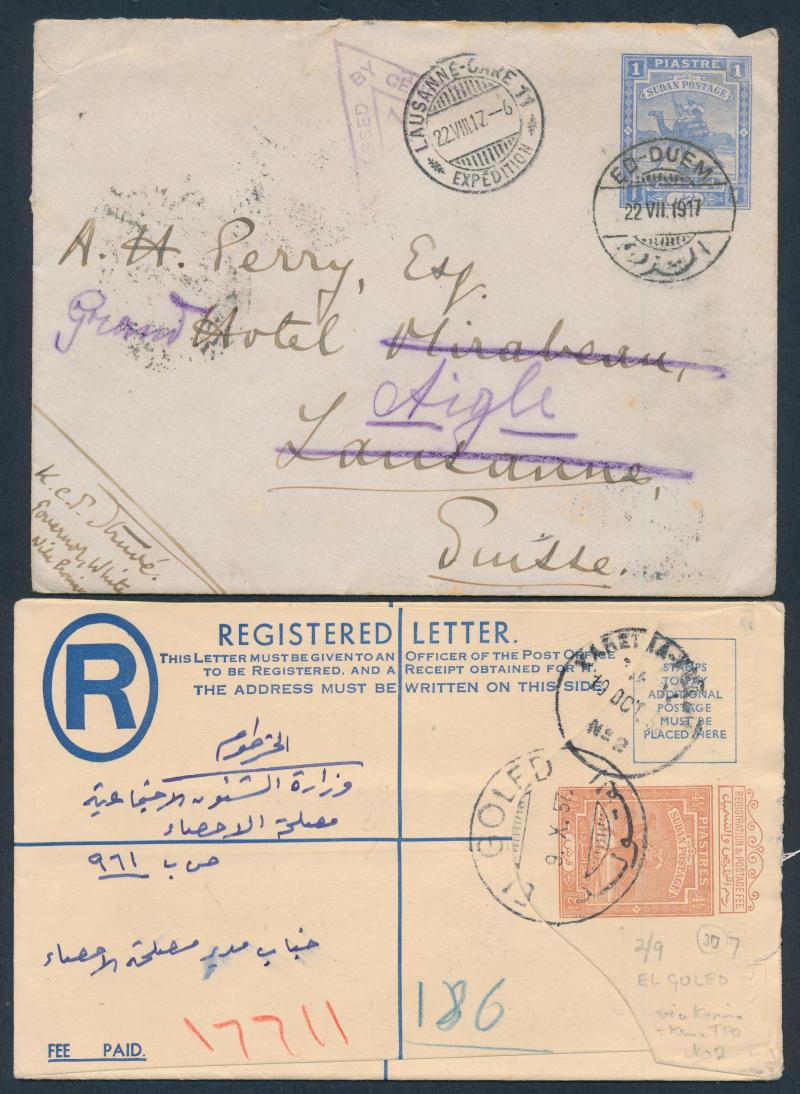 BY CE
LAUSANNE-GARE 11
22.VIII.17.-6
EXPÉDITION
1 PIASTRE 1
SUDAN POSTAGE
ED-DUEM
22 VII. 1917
الدويم
A. H. Perry, Esq.
Grand Hotel Mirabeau,
Aigle
Lausanne,
Suisse.
K.C.P. Struvé.
Governor, White
Nile
REGISTERED LETTER.
THIS LETTER MUST BE GIVEN TO AN OFFICER OF THE POST OFFICE
TO BE REGISTERED, AND A RECEIPT OBTAINED FOR IT.
THE ADDRESS MUST BE WRITTEN ON THIS SIDE
R
STAMPS
TO PAY
ADDITIONAL
POSTAGE
MUST BE
PLACED HERE
OCT
No 2
الخرطوم
وزارة الشئون الاجتماعية
مصلحة الاحصاء
ص ب ٩٦١
EL GOLED
9. X. 51
4½ PIASTRES 4½
SUDAN POSTAGE
REGISTRATION & POSTAGE FEE
جناب مدير مصلحة الاحصاء
2/9 30 7
EL GOLED
via Karima
TPO
No 2
186
١٦٦١١
FEE PAID.